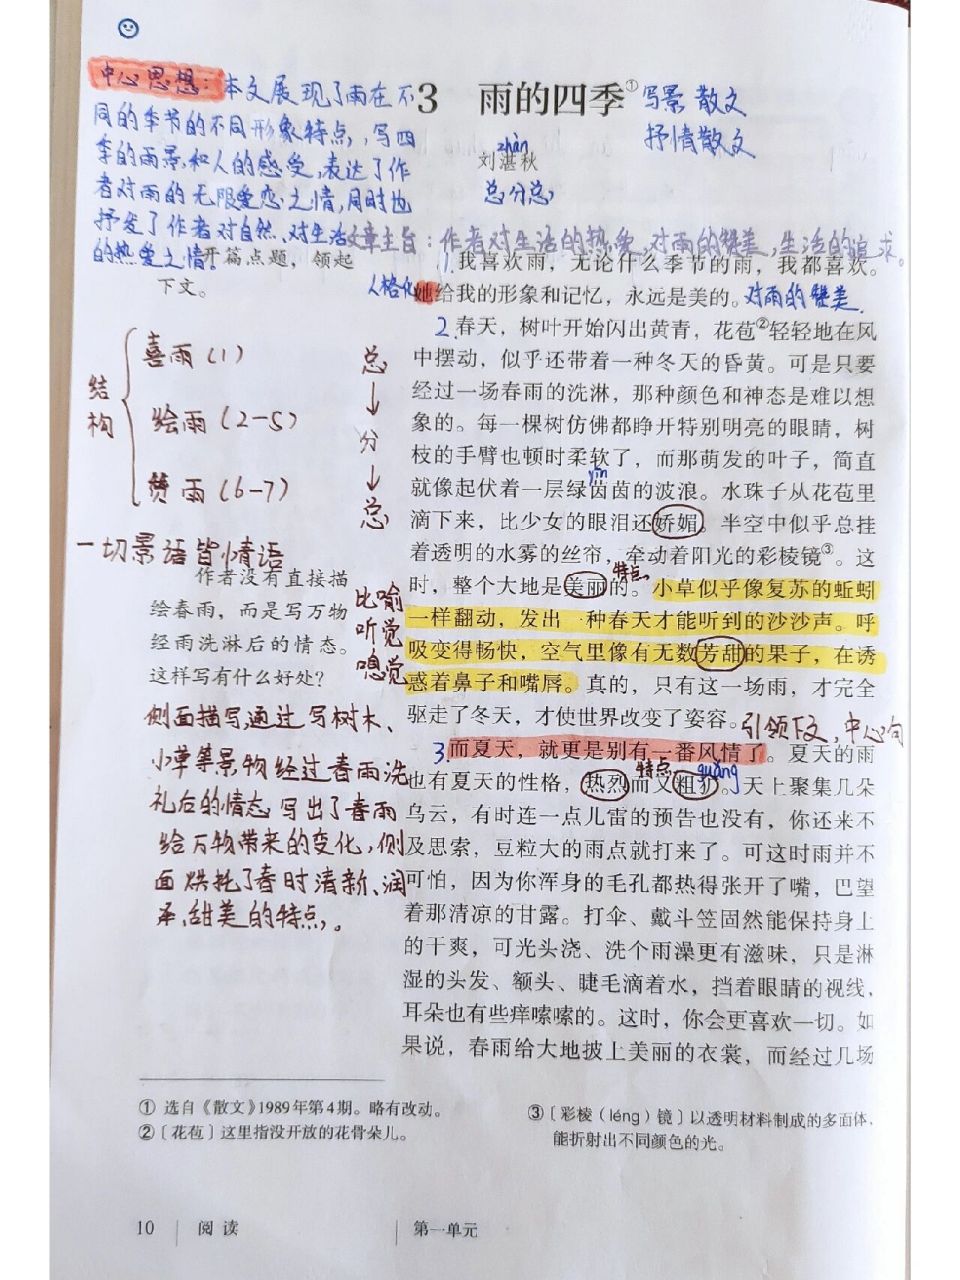 中心思想：本文展现了雨在不
同的季节的不同形象特点，写四
季的雨景和人的感受，表达了作
者对雨的无限爱恋之情，同时也
抒发了作者对自然、对生活
的热爱之情。
3 雨的四季①
写景散文
抒情散文
zhàn
刘湛秋
总分总
文章主旨：作者对生活的热爱，对雨的赞美，生活的追求。
开篇点题，领起
下文。
人格化
1.我喜欢雨，无论什么季节的雨，我都喜欢。
她给我的形象和记忆，永远是美的。对雨的赞美
结构
喜雨（1）
绘雨（2-5）
赞雨（6-7）
总
↓
分
↓
总
一切景语皆情语
作者没有直接描
绘春雨，而是写万物
经雨洗淋后的情态。
这样写有什么好处？
侧面描写，通过写树木、
小草等景物经过春雨洗
礼后的情态写出了春雨
给万物带来的变化，侧
面烘托了春时清新、润
泽、甜美的特点。
2.春天，树叶开始闪出黄青，花苞②轻轻地在风
中摆动，似乎还带着一种冬天的昏黄。可是只要
经过一场春雨的洗淋，那种颜色和神态是难以想
象的。每一棵树仿佛都睁开特别明亮的眼睛，树
枝的手臂也顿时柔软了，而那萌发的叶子，简直
yīn
就像起伏着一层绿茵茵的波浪。水珠子从花苞里
滴下来，比少女的眼泪还娇媚。半空中似乎总挂
着透明的水雾的丝帘，牵动着阳光的彩棱镜③。这
特点
时，整个大地是美丽的。小草似乎像复苏的蚯蚓
比喻
一样翻动，发出一种春天才能听到的沙沙声。呼
听觉
吸变得畅快，空气里像有无数芳甜的果子，在诱
嗅觉
惑着鼻子和嘴唇。真的，只有这一场雨，才完全
驱走了冬天，才使世界改变了姿容。引领下文，中心句
3.而夏天，就更是别有一番风情了。夏天的雨
特点 guǎng
也有夏天的性格，热烈而又粗犷。天上聚集几朵
乌云，有时连一点儿雷的预告也没有，你还来不
及思索，豆粒大的雨点就打来了。可这时雨并不
可怕，因为你浑身的毛孔都热得张开了嘴，巴望
着那清凉的甘露。打伞、戴斗笠固然能保持身上
的干爽，可光头浇、洗个雨澡更有滋味，只是淋
湿的头发、额头、睫毛滴着水，挡着眼睛的视线，
耳朵也有些痒嗦嗦的。这时，你会更喜欢一切。如
果说，春雨给大地披上美丽的衣裳，而经过几场
① 选自《散文》1989年第4期。略有改动。
②〔花苞〕这里指没开放的花骨朵儿。
③〔彩棱（léng）镜〕以透明材料制成的多面体，
能折射出不同颜色的光。
10 阅读 第一单元